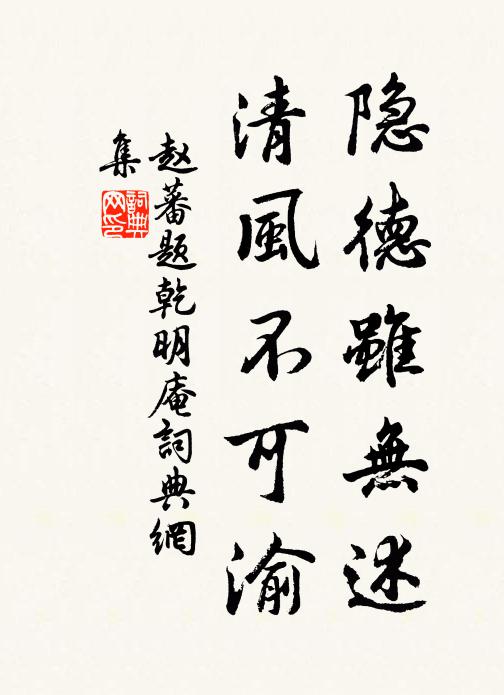 隐德雖無述
清風不可渝
赵蕃题乾明庵詞典網
集
詞典网印